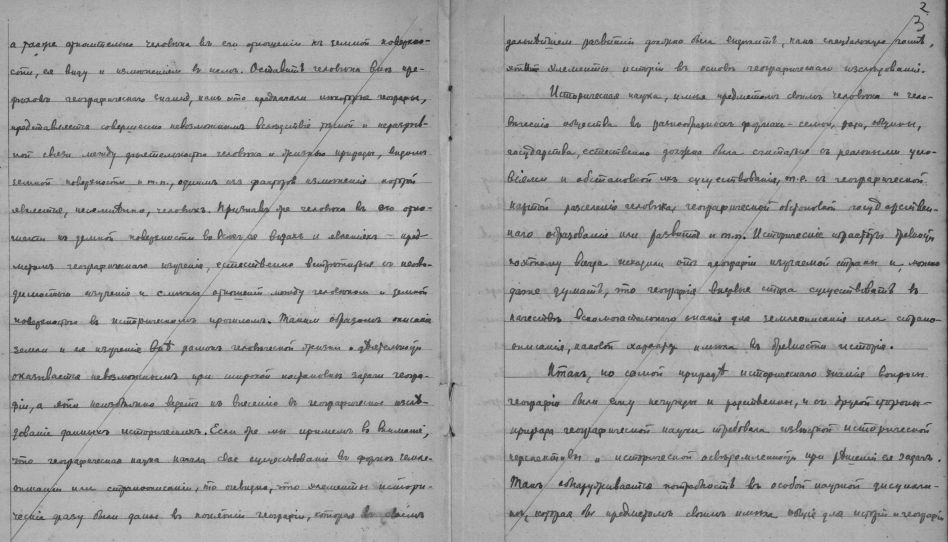 2
3
а также относительно человека въ его отношеніи къ земной поверхно-
сти, ея виду и измѣненіямъ въ немъ. Оставить человѣка внѣ пре-
дѣловъ географическаго знанія, какъ это предлагали некоторые географы,
представляется совершенно невозможнымъ вслѣдствіе тѣсной и неразрыв-
ной связи между дѣятельностью человѣка и жизнью природы, видомъ
земной поверхности и т.п., однимъ изъ факторовъ измѣненія которой
является, несомнѣнно, человѣкъ. Признавая же человѣка въ его отно-
шеніи къ земной поверхности во всѣхъ ея видахъ и явленіяхъ – пред-
метомъ географическаго изученія, естественно встрѣтиться съ необхо-
димостью изученія и смѣны отношеній между человѣкомъ и земной
поверхностью въ историческомъ прошломъ. Такимъ образомъ описаніе
земли и ея изученіе внѣ рамокъ человѣческой жизни и дѣятельности
оказывается невозможнымъ при широкой постановкѣ задачи геогра-
фіи, а это неизбѣжно ведетъ къ внесенію въ географическое изслѣ-
дованіе данныхъ историческихъ. Если же мы примемъ во вниманіе,
что географическая наука начала свое существованіе въ формѣ земле-
описанія или страноописанія, то очевидно, что элементы истори-
ческіе сразу были даны въ понятіи географіи, которая въ своемъ
дальнѣйшемъ развитіи должна была выдѣлить, какъ спеціальную часть,
эти элементы исторіи въ основѣ географическаго изслѣдованія.
Историческая наука, имѣя предметомъ своимъ человѣка и чело-
вѣческія общества въ разнообразныхъ формахъ – семьи, рода, общины,
государства, естественно должна была считаться съ реальными усло-
віями и обстановкой ихъ существованія, т.е. съ географической
картой разселенія человѣка, географической обстановкой государствен-
наго образованія или развитія и т.п. Историческіе труды древности
поэтому всегда исходили отъ географіи изучаемой страны и, можно
даже думать, что географія впервые стала существовать въ
качествѣ вспомогательнаго знанія для землеописанія или страно-
описанія, каковой характеръ имѣла въ древности исторія.
Итакъ, по самой природѣ историческаго знанія вопросы
географіи были ему нечужды и родственны, и съ другой стороны –
природа географической науки требовала извѣстной исторической
перспективы и исторической освѣдомленности при рѣшеніи ея задачъ.
Такъ обнаруживается потребность въ особой научной дисципли-
нѣ, которая бы предметомъ своимъ имѣла общіе для исторіи и географіи